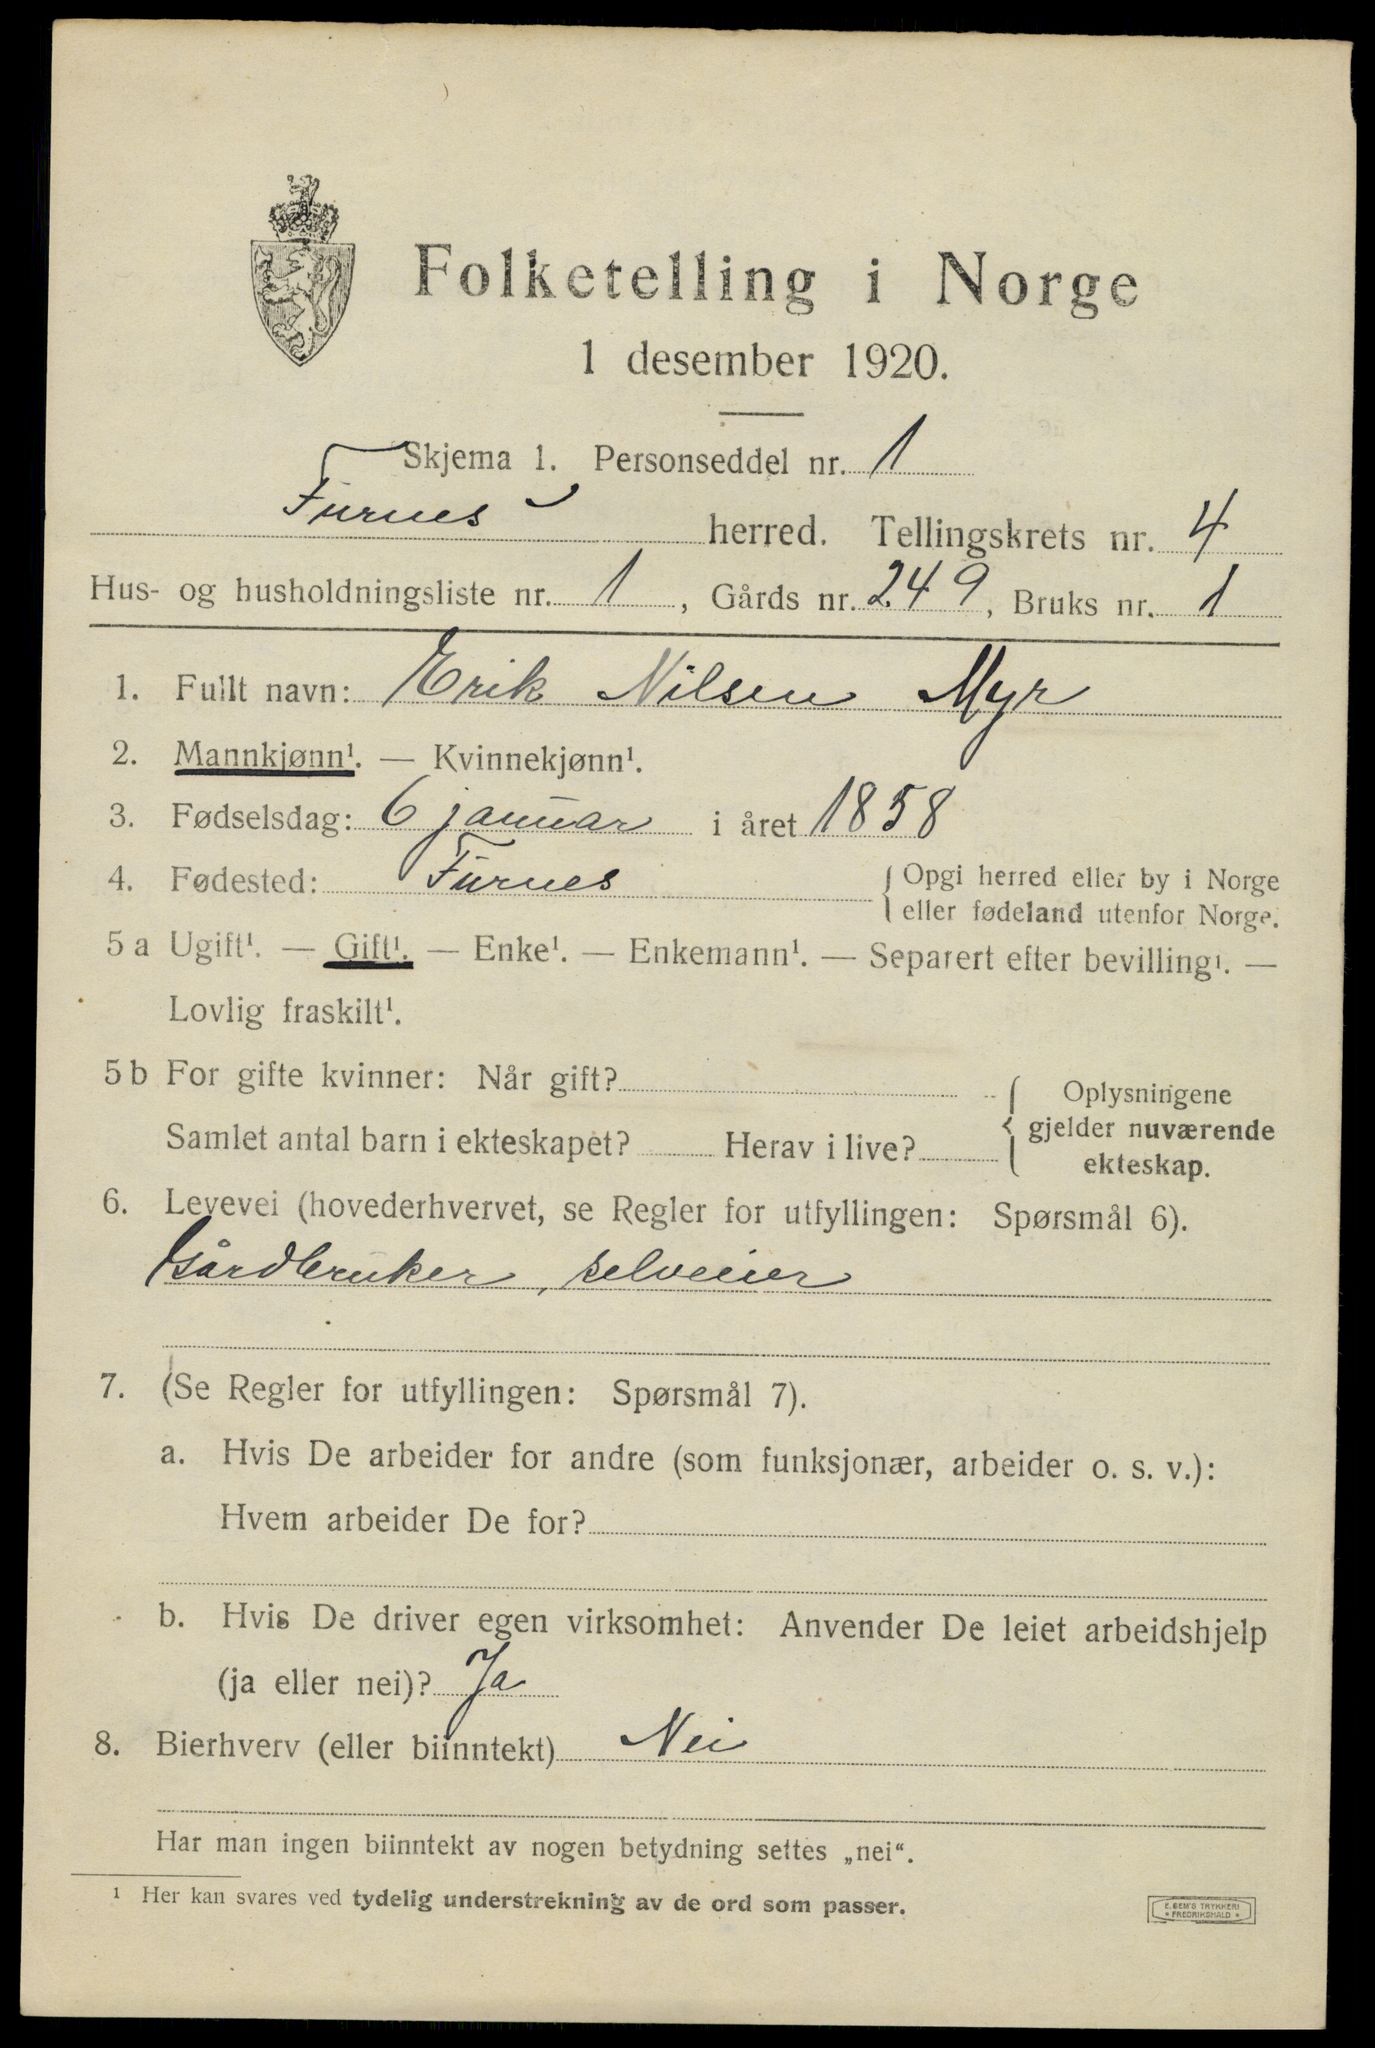 Folketelling i Norge
1 desember 1920.
Skjema 1. Personseddel nr. 1
Furnes herred. Tellingskrets nr. 4
Hus- og husholdningsliste nr. 1, Gårds nr. 249, Bruks nr. 1
1. Fullt navn: Erik Nilsen Myr
2. Mannkjønn¹. — Kvinnekjønn¹.
3. Fødselsdag: 6 januar i året 1858
4. Fødested: Furnes { Opgi herred eller by i Norge
eller fødeland utenfor Norge.
5 a Ugift¹. — Gift¹. — Enke¹. — Enkemann¹. — Separert efter bevilling¹. —
Lovlig fraskilt¹.
5 b For gifte kvinner: Når gift?
Samlet antal barn i ekteskapet? Herav i live?
{ Oplysningene
gjelder nuværende
ekteskap.
6. Levevei (hovederhvervet, se Regler for utfyllingen: Spørsmål 6).
Gårdbruker, selveier
7. (Se Regler for utfyllingen: Spørsmål 7).
a. Hvis De arbeider for andre (som funksjonær, arbeider o. s. v.):
Hvem arbeider De for?
b. Hvis De driver egen virksomhet: Anvender De leiet arbeidshjelp
(ja eller nei)? Ja
8. Bierhverv (eller biinntekt) Nei
Har man ingen biinntekt av nogen betydning settes „nei“.
¹ Her kan svares ved tydelig understrekning av de ord som passer.
E. SEM'S TRYKKERI
* FREDRIKSHALD *